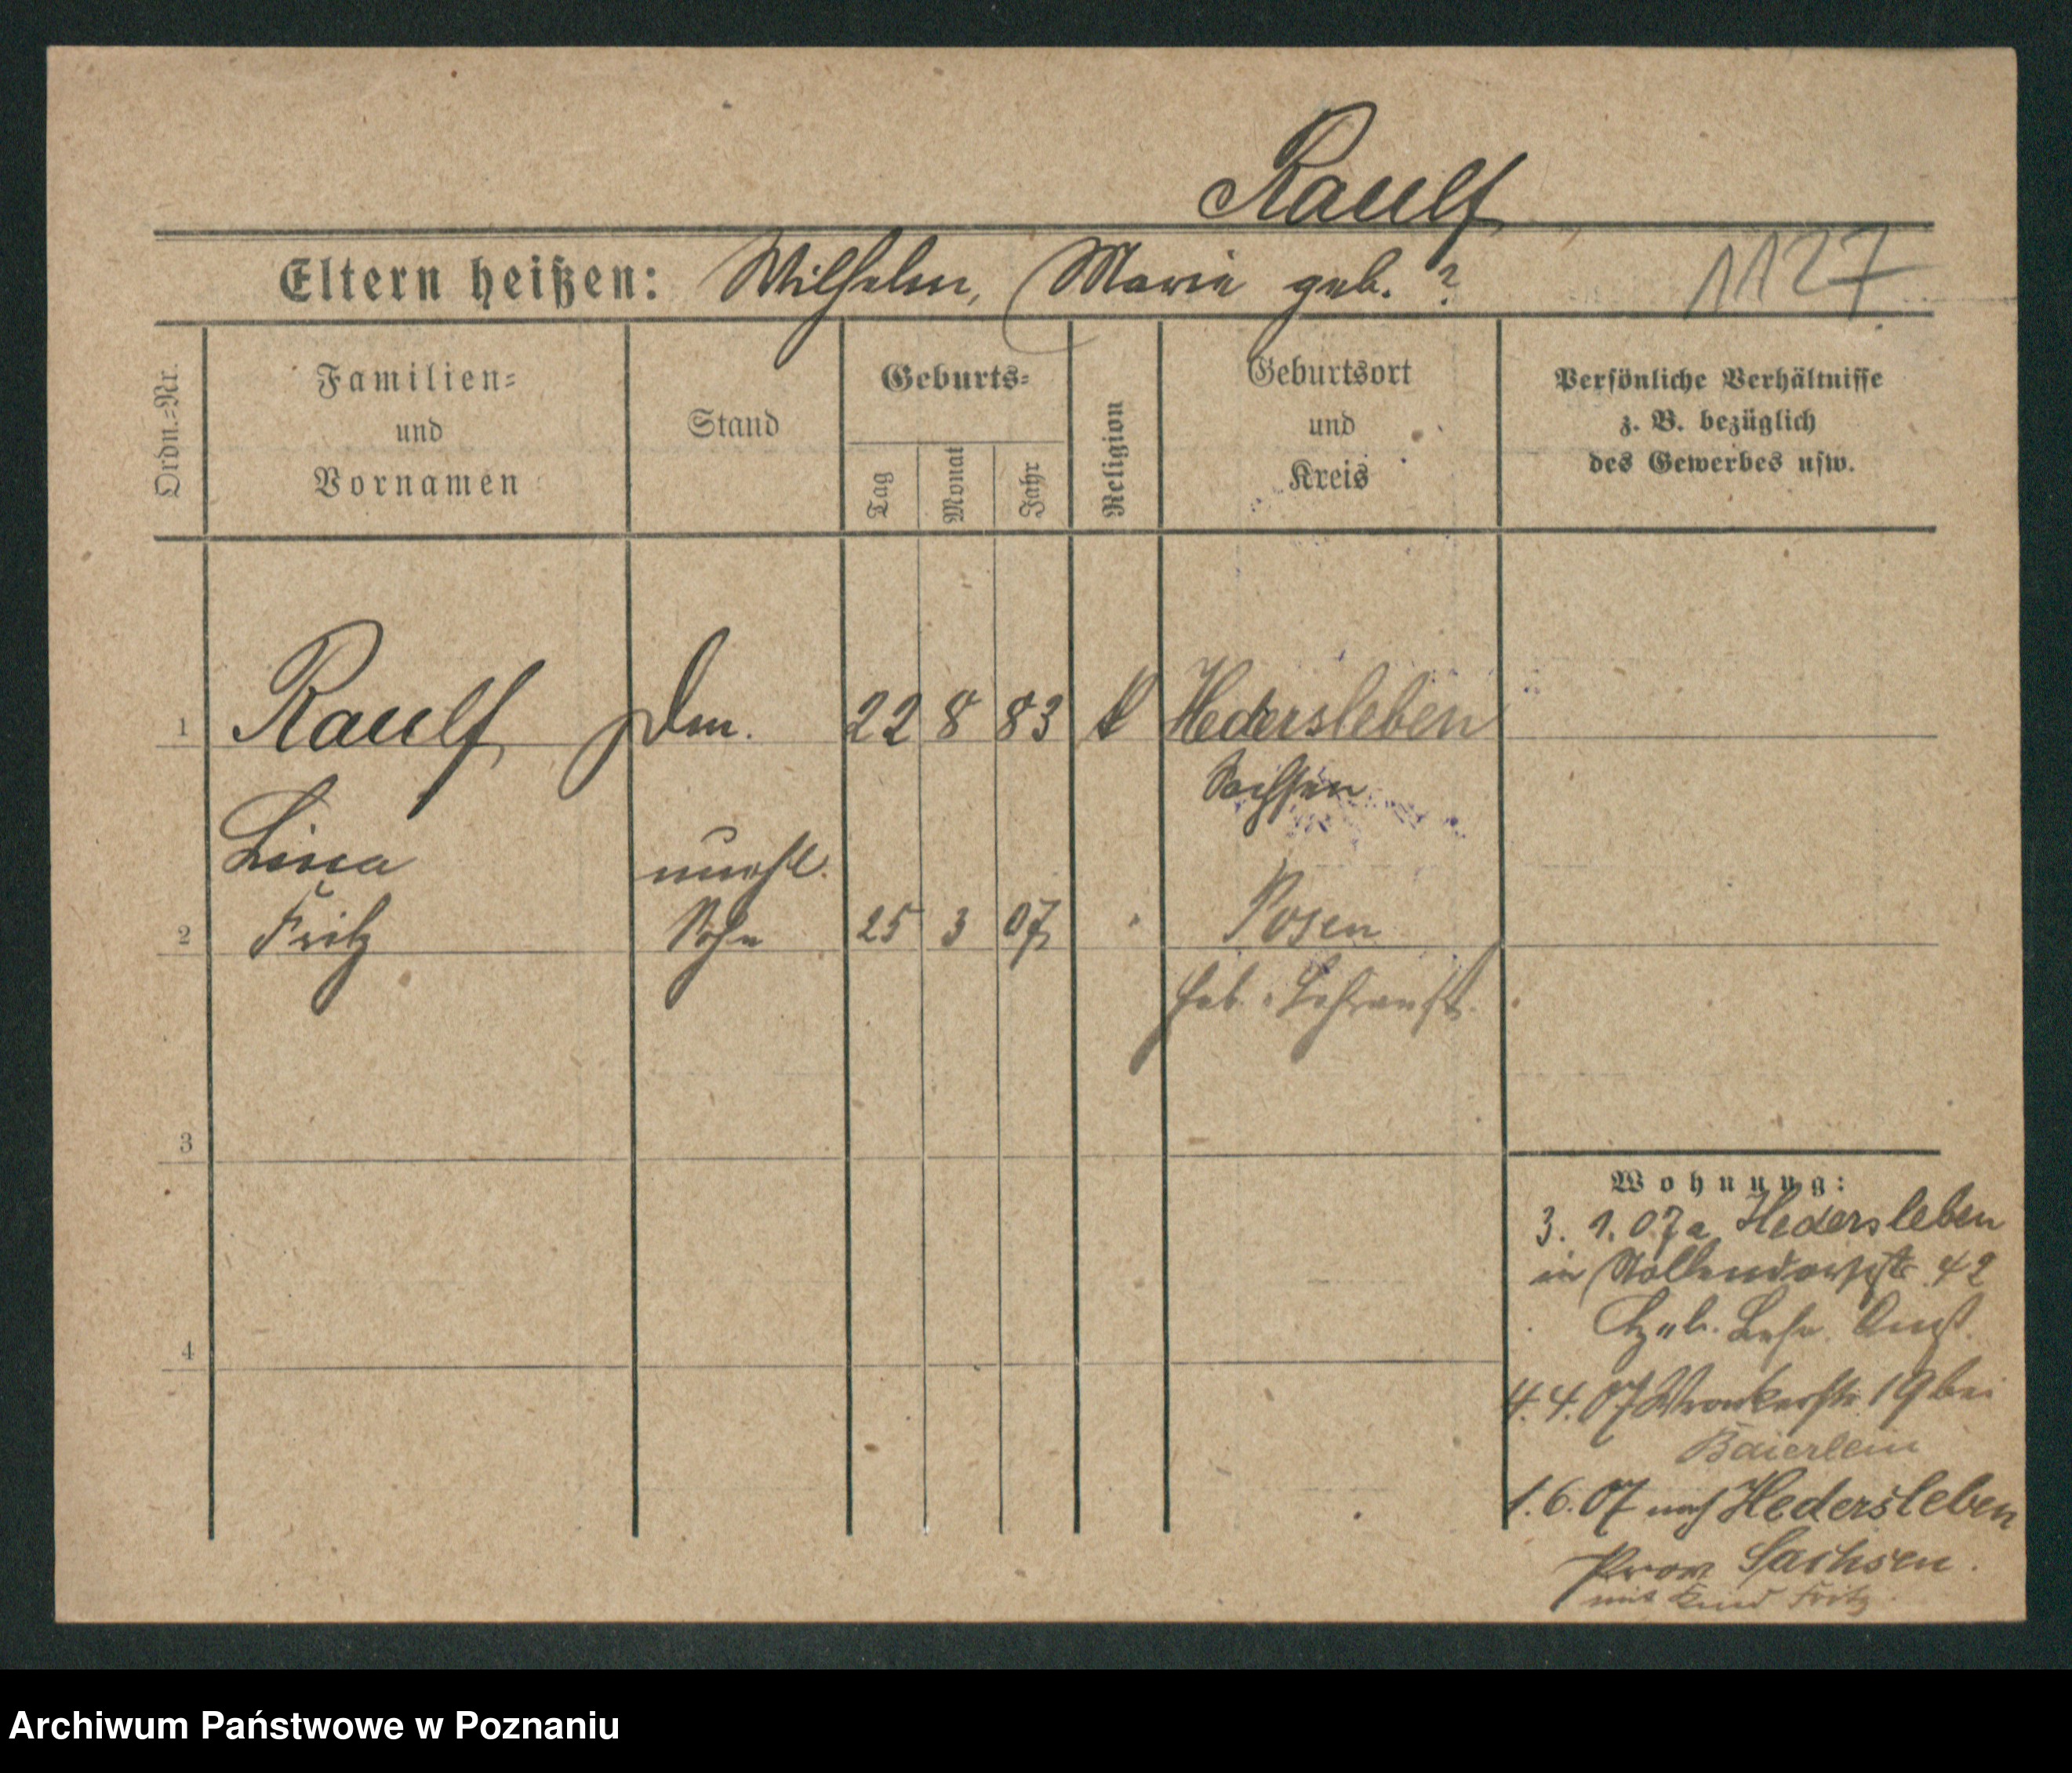 Raulf
Eltern heißen: Wilhelm, Marie geb. ?
1127
Ordn.=Nr.
Familien=
und
Vornamen
Stand
Geburts=
Tag
Monat
Jahr
Religion
Geburtsort
und
Kreis
Persönliche Verhältnisse
z. B. bezüglich
des Gewerbes usw.
1 Raulf 22 8 83 k Hedersleben
Sachsen
Lina unehl.
2 Fritz Sohn 25 3 07 " Posen
Heb. Lehranst.
3
4
Wohnung:
3. 1. 07 a Hedersleben
in Nollendorfstr 42
Heb. Lehr. Anst.
4. 4. 07 Wronkerstr 19 bei
Baierlein
1. 6. 07 nach Hedersleben
Prov Sachsen.
mit Kind Fritz
Archiwum Państwowe w Poznaniu